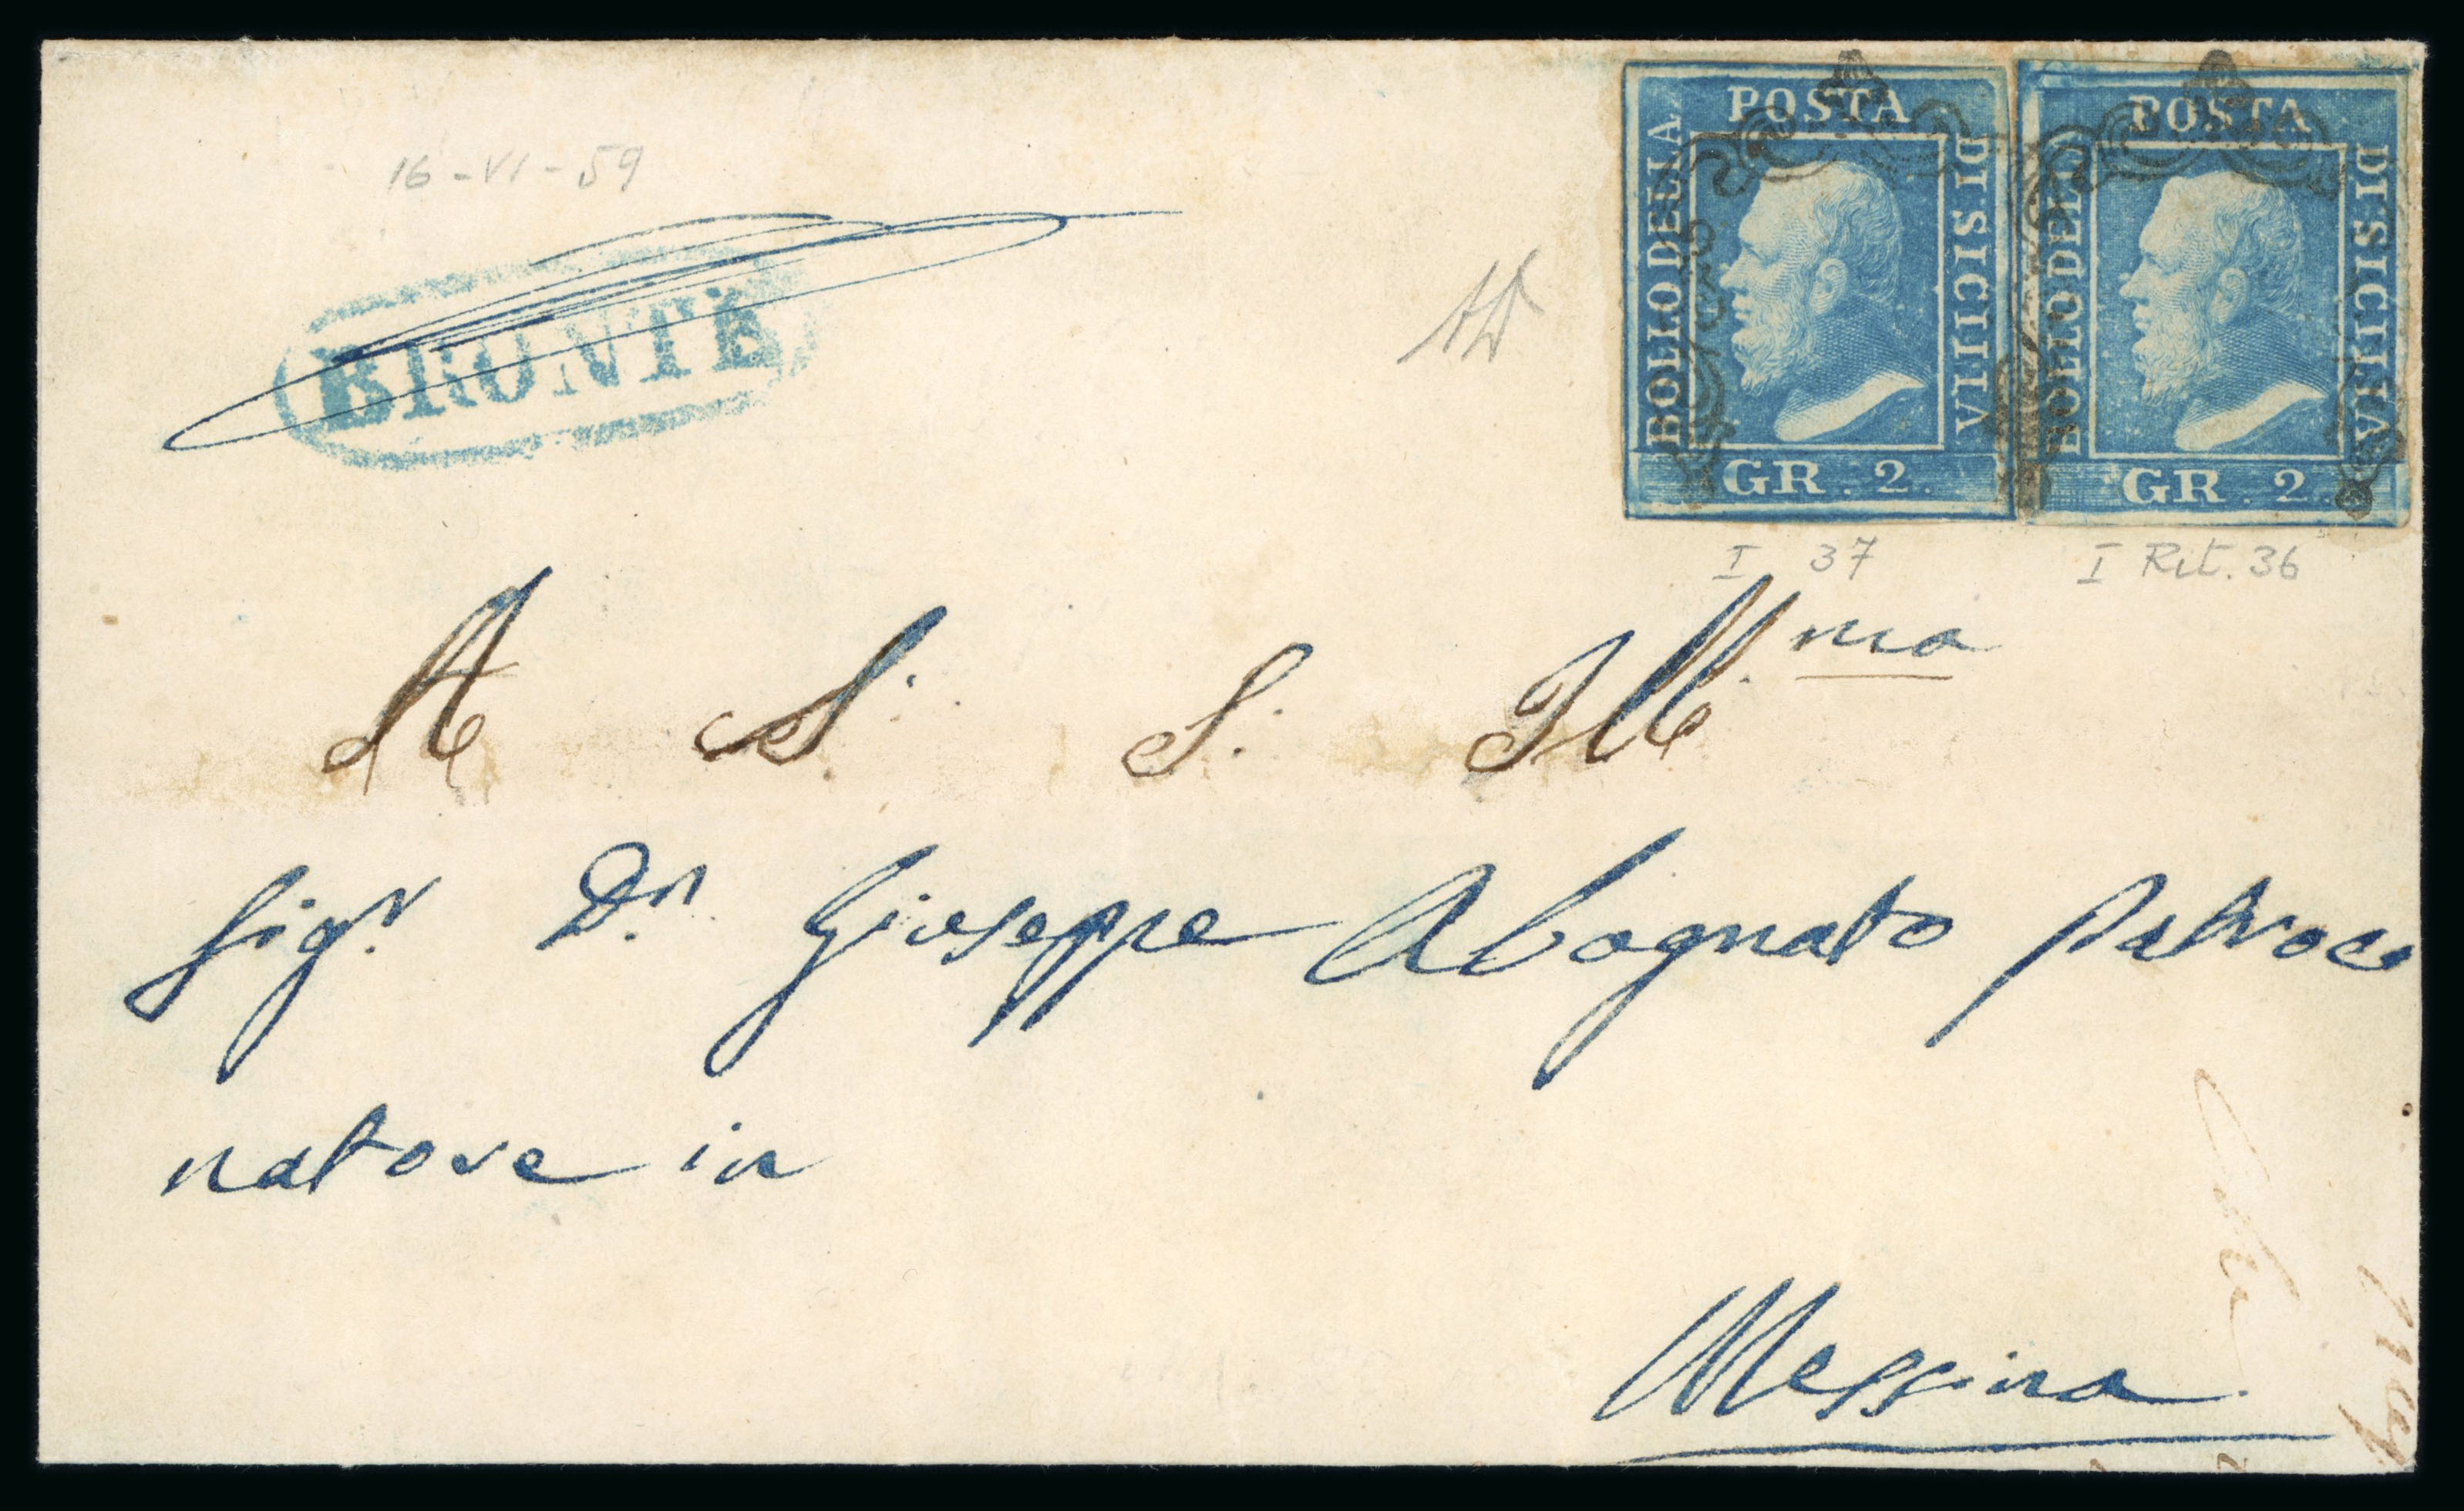 16-VI-59
BRONTE
POSTA
BOLLO DELLA
DI SICILIA
GR. 2.
POSTA
BOLLO DELLA
DI SICILIA
GR. 2.
I 37
I Rit. 36
A S. S. Ill.ma
Sig.r D.n Giuseppe Abagnato Patroci
natore in
Messina